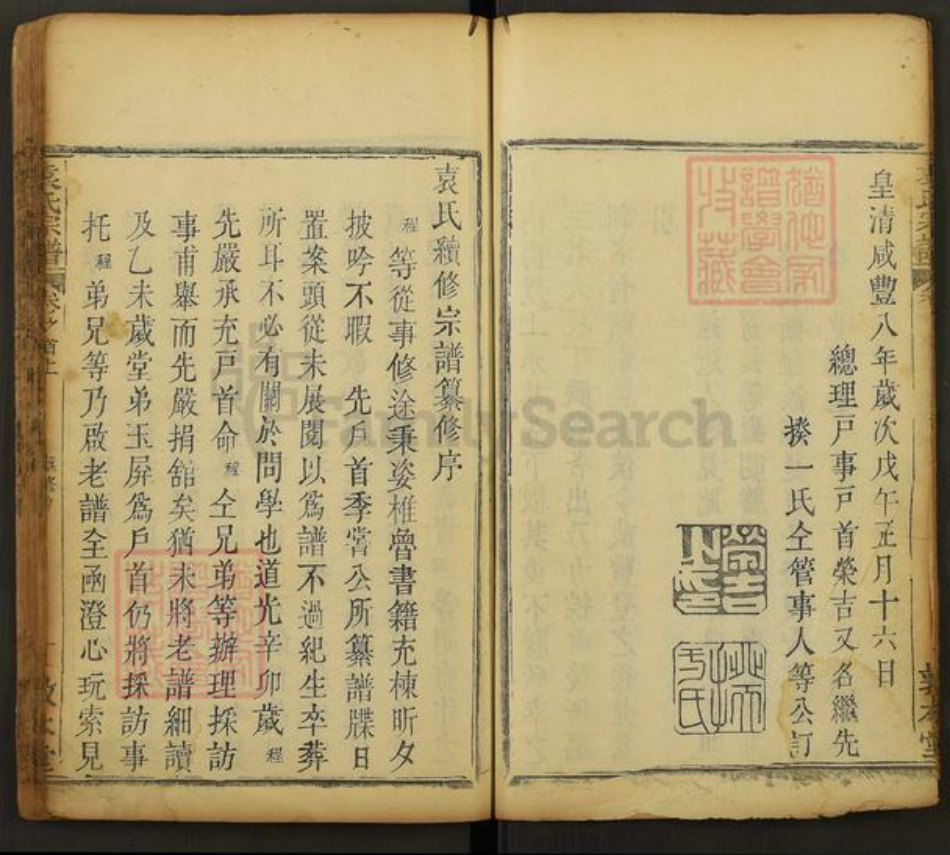 皇清咸豐八年歲次戊午正月十六日
總理戶事戶首榮吉又名繼先
揆一氏仝管事人等公訂
袁氏續修宗譜纂修序
程等從事修途秉姿椎魯書籍充棟昕夕
披吟不暇　先戶首季嘗公所纂譜牒日
置案頭從未展閱以為譜不過紀生卒葬
所耳不必有關於問學也道光辛卯歲程
先嚴承充戶首命程仝兄弟等辦理採訪
事甫舉而先嚴捐舘矣猶未將老譜細讀
及乙未歲堂弟玉屏爲戶首仍將採訪事
托程弟兄等乃啟老譜全函澄心玩索見
袁氏宗譜
敦本堂
FamilySearch